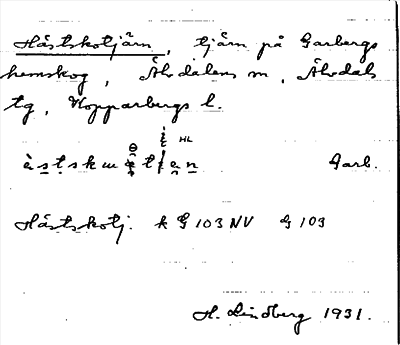 Håstskotjärn, tjärn på Garbergs
hemskog, Älvdalens sn, Älvdals
tg, Kopparbergs l.
HL
Garb.
Håstskotj. k G 103 NV G 103
H. Lindberg 1931.